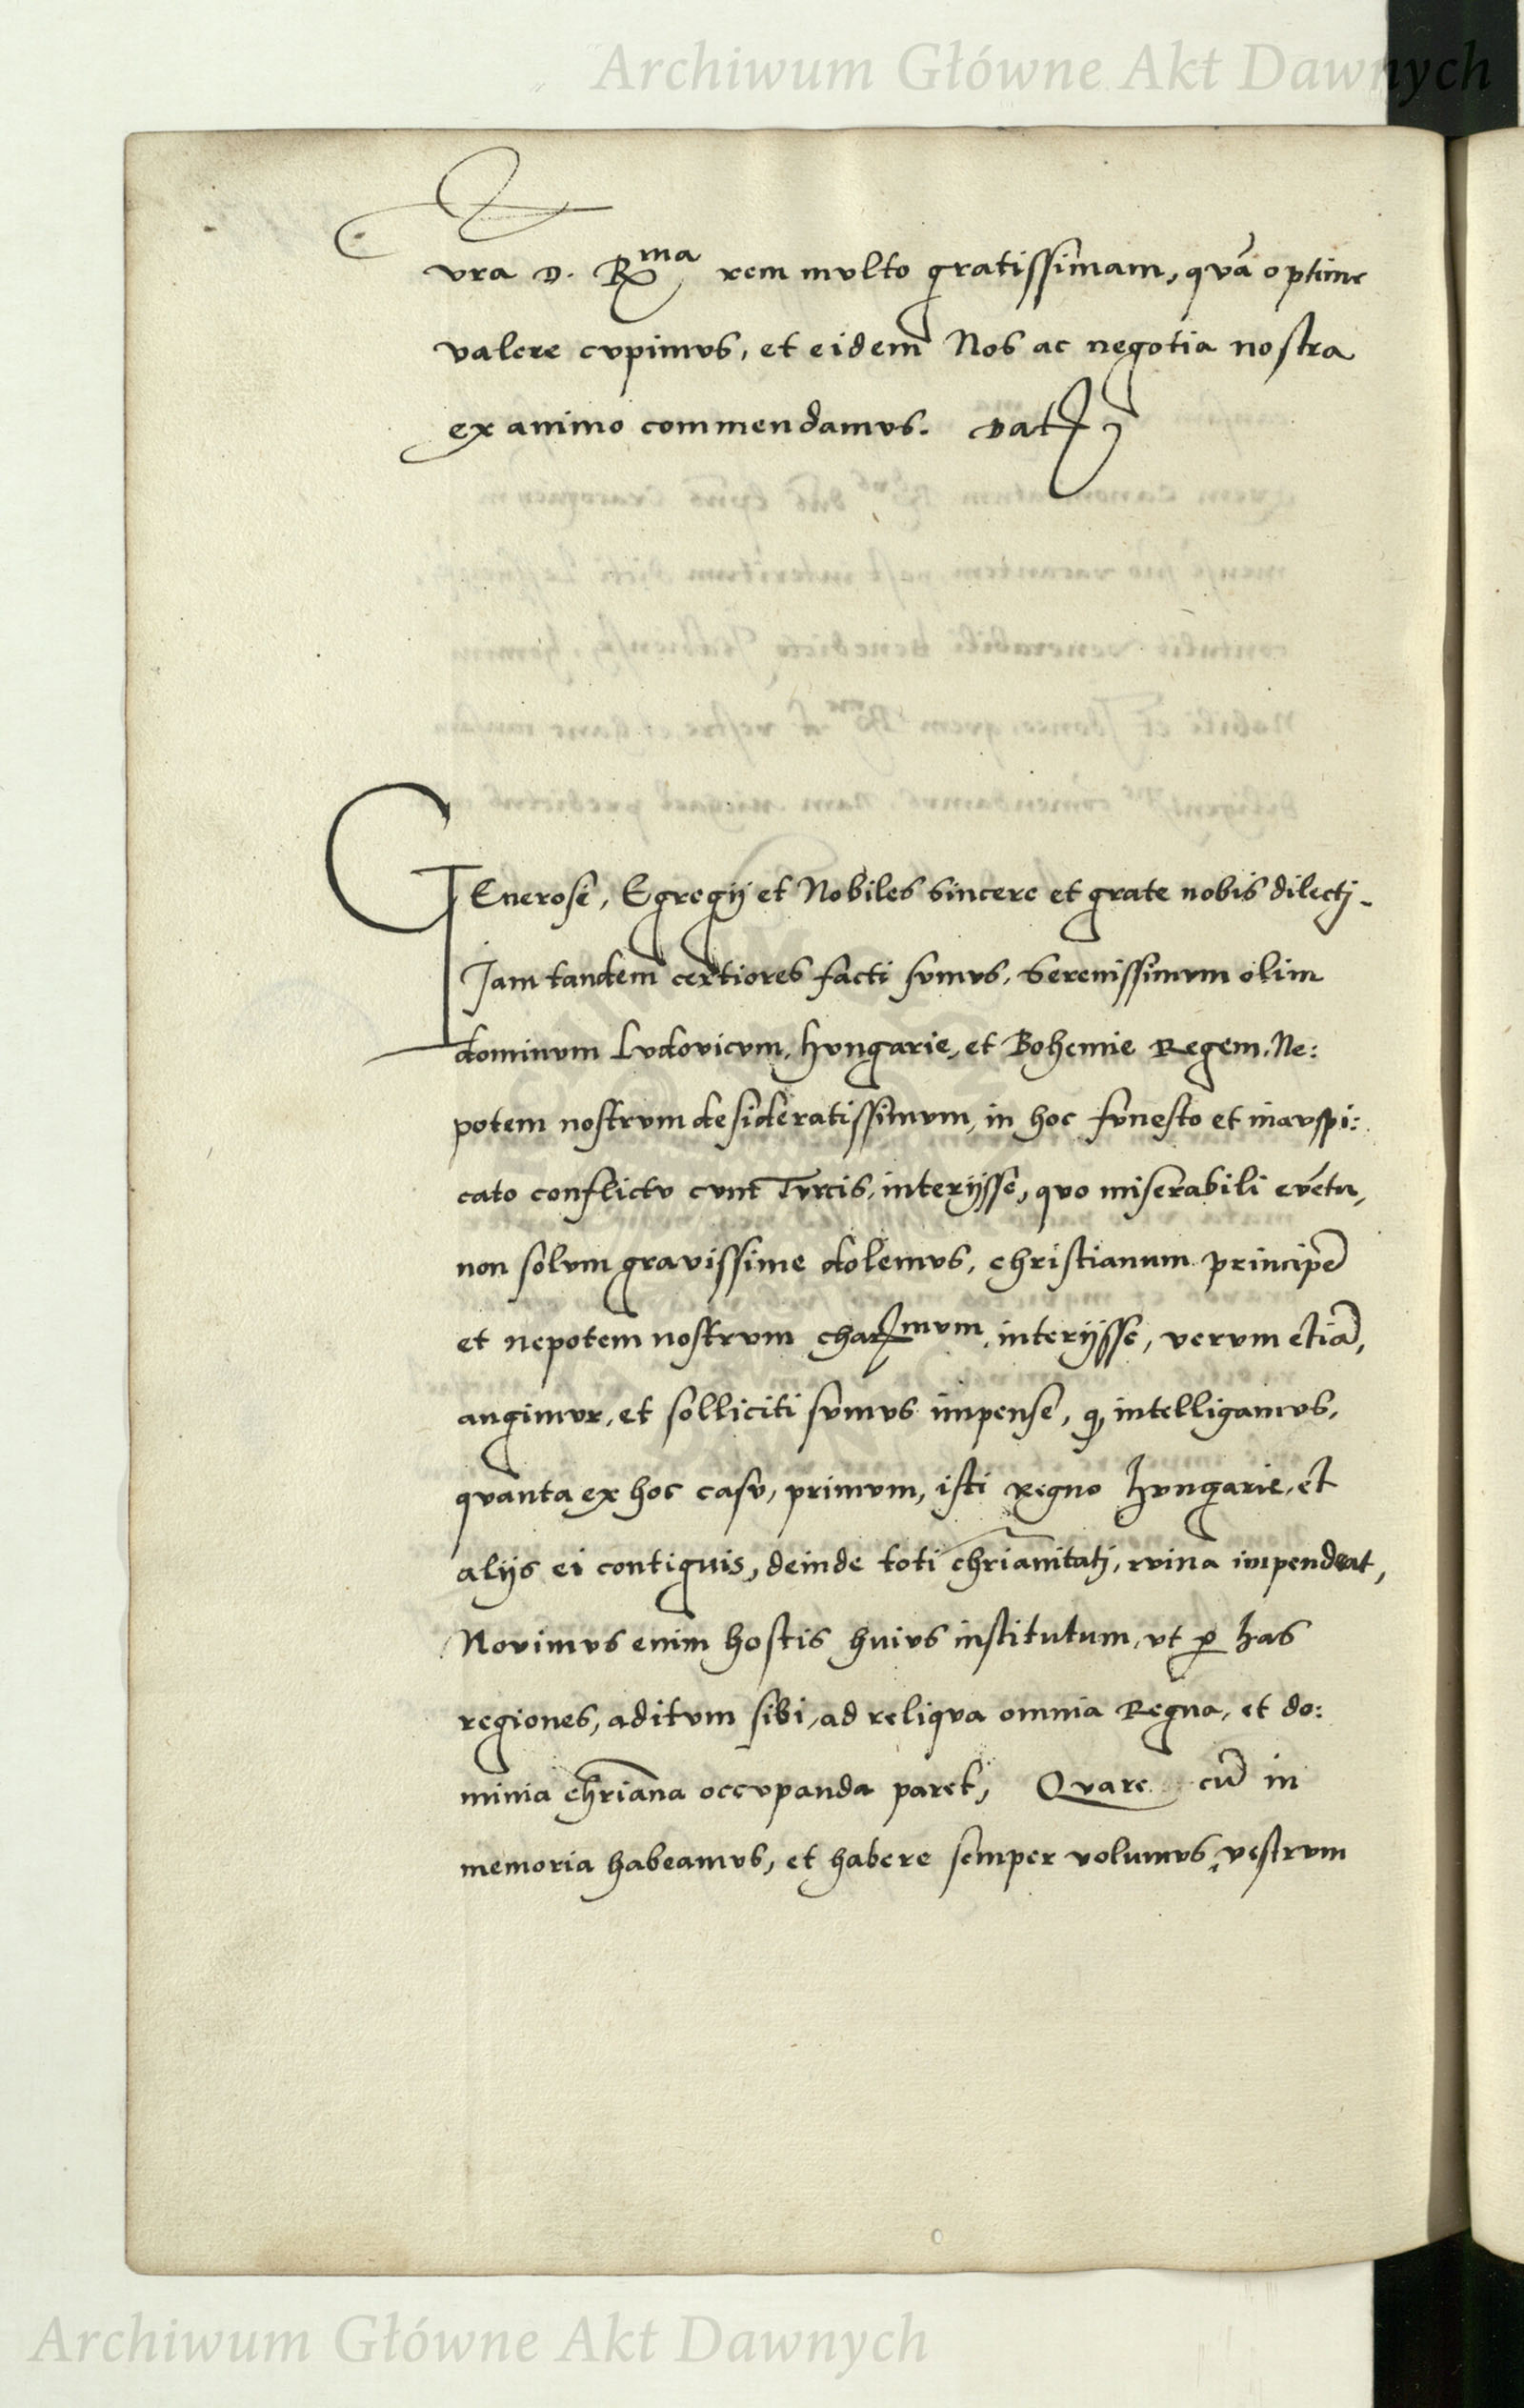 Archiwum Główne Akt Dawnych
vra D. R^ma rem mvlto gratissimam, qvã optime
valere cvpimvs, et eidem Nos ac negotia nostra
ex animo commendamvs. Dat
GEnerosi, Egregij et Nobiles sincere et grate nobis dilectj.
Jam tandem certiores facti svmvs, Serenissimvm olim
dominvm Lvdovicvm, Hvngarie, et Bohemie Regem, Ne:
potem nostrvm desideratissimvm, in hoc fvnesto et inavspi:
cato conflictv cvm Tvrcis, interijsse, qvo miserabili evẽtu,
non solvm gravissime dolemvs, christianum principẽ
et nepotem nostrvm char^mvm, interijsse, vervm etiã,
angimvr, et solliciti svmvs impense, q, intelligamvs,
qvanta ex hoc casv, primvm, isti regno Hvngarie, et
alijs ei contigvis, deinde toti chrianitatj, rvina impendeat,
Novimvs enim hostis huivs institutum, vt p has
regiones, aditvm sibi, ad reliqva omnia Regna, et do:
minia chriana occvpanda paret, Qvare cũ in
memoria habeamvs, et habere semper volumvs, vestrvm
Archiwum Główne Akt Dawnych